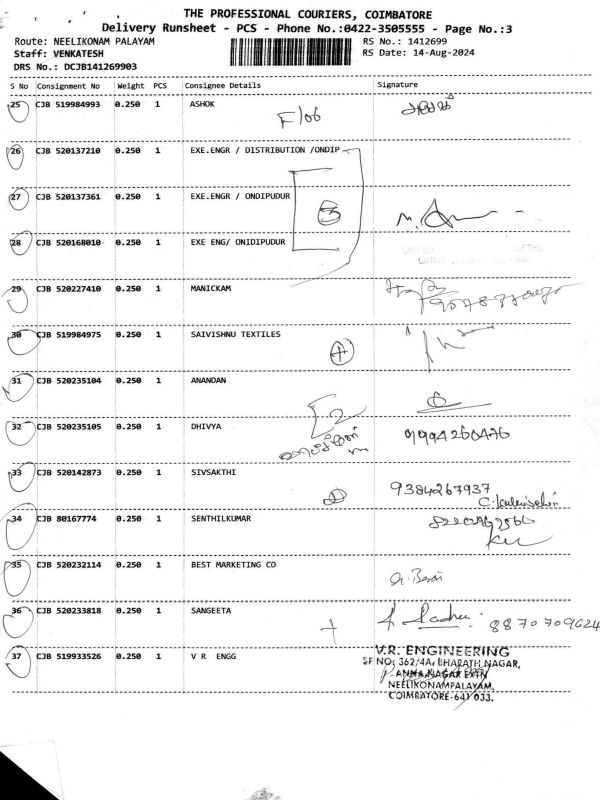 THE PROFESSIONAL COURIERS, COIMBATORE
Delivery Runsheet - PCS - Phone No.:0422-3505555 - Page No.:3
Route: NEELIKONAM PALAYAM
RS No.: 1412699
Staff: VENKATESH
RS Date: 14-Aug-2024
DRS No.: DCJB141269903
S No Consignment No Weight PCS Consignee Details Signature
25 CJB 519984993 0.250 1 ASHOK
F/06
26 CJB 520137210 0.250 1 EXE.ENGR / DISTRIBUTION /ONDIP
27 CJB 520137361 0.250 1 EXE.ENGR / ONDIPUDUR
3
28 CJB 520168010 0.250 1 EXE ENG/ ONIDIPUDUR
29 CJB 520227410 0.250 1 MANICKAM
30 CJB 519984975 0.250 1 SAIVISHNU TEXTILES
31 CJB 520235104 0.250 1 ANANDAN
2
32 CJB 520235105 0.250 1 DHIVYA 9994260476
33 CJB 520142873 0.250 1 SIVSAKTHI
9384267937
34 CJB 80167774 0.250 1 SENTHILKUMAR
35 CJB 520232114 0.250 1 BEST MARKETING CO
36 CJB 520233818 0.250 1 SANGEETA
8870709624
37 CJB 519933526 0.250 1 V R ENGG
V.R. ENGINEERING
SF NO: 362/4A, BHARATH NAGAR,
ANNA NAGAR EXTN
NEELIKONAMPALAYAM,
COIMBATORE-641 033.